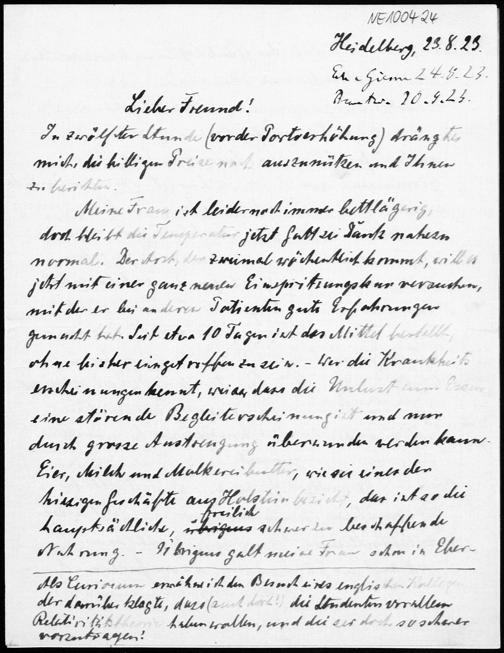 NE100424
Heidelberg, 23.8.23.
24.9.23.
10.9.23.
Lieber Freund!
In zwölfter Stunde (vor der Portoerhöhung) drängt es
mich, die billigen Preise noch auszunützen und Ihnen
zu berichten.
Meine Frau ist leider noch immer bettlägerig,
doch bleibt die Temperatur jetzt Gott sei Dank nahezu
normal. Der Arzt, der zweimal wöchentlich kommt, will es
jetzt mit einer ganz neuen Einspritzungskur versuchen,
mit der er bei anderen Patienten gute Erfahrungen
gemacht hat. Seit etwa 10 Tagen ist das Mittel bestellt,
ohne bisher eingetroffen zu sein. – Wer die Krankheits
erscheinungen kennt, weiss, dass die Unlust zum Essen
eine störende Begleiterscheinung ist und nur
durch grosse Anstrengung überwunden werden kann.
Eier, Milch und Molkereibutter, wie sie eines der
hiesigen Geschäfte aus Holstein bezieht, das ist so die
hauptsächliche, übrigens freilich schwer zu beschaffende
Nahrung. – Übrigens galt meine Frau schon in Eber-
Als Curiosum erwähne ich den Besuch eines englischen Kollegen
der darüber klagte, dass (auch dort!) die Studenten vor allem
Relativitätstheorie haben wollen, und die sei doch so schwer
vorzutragen!